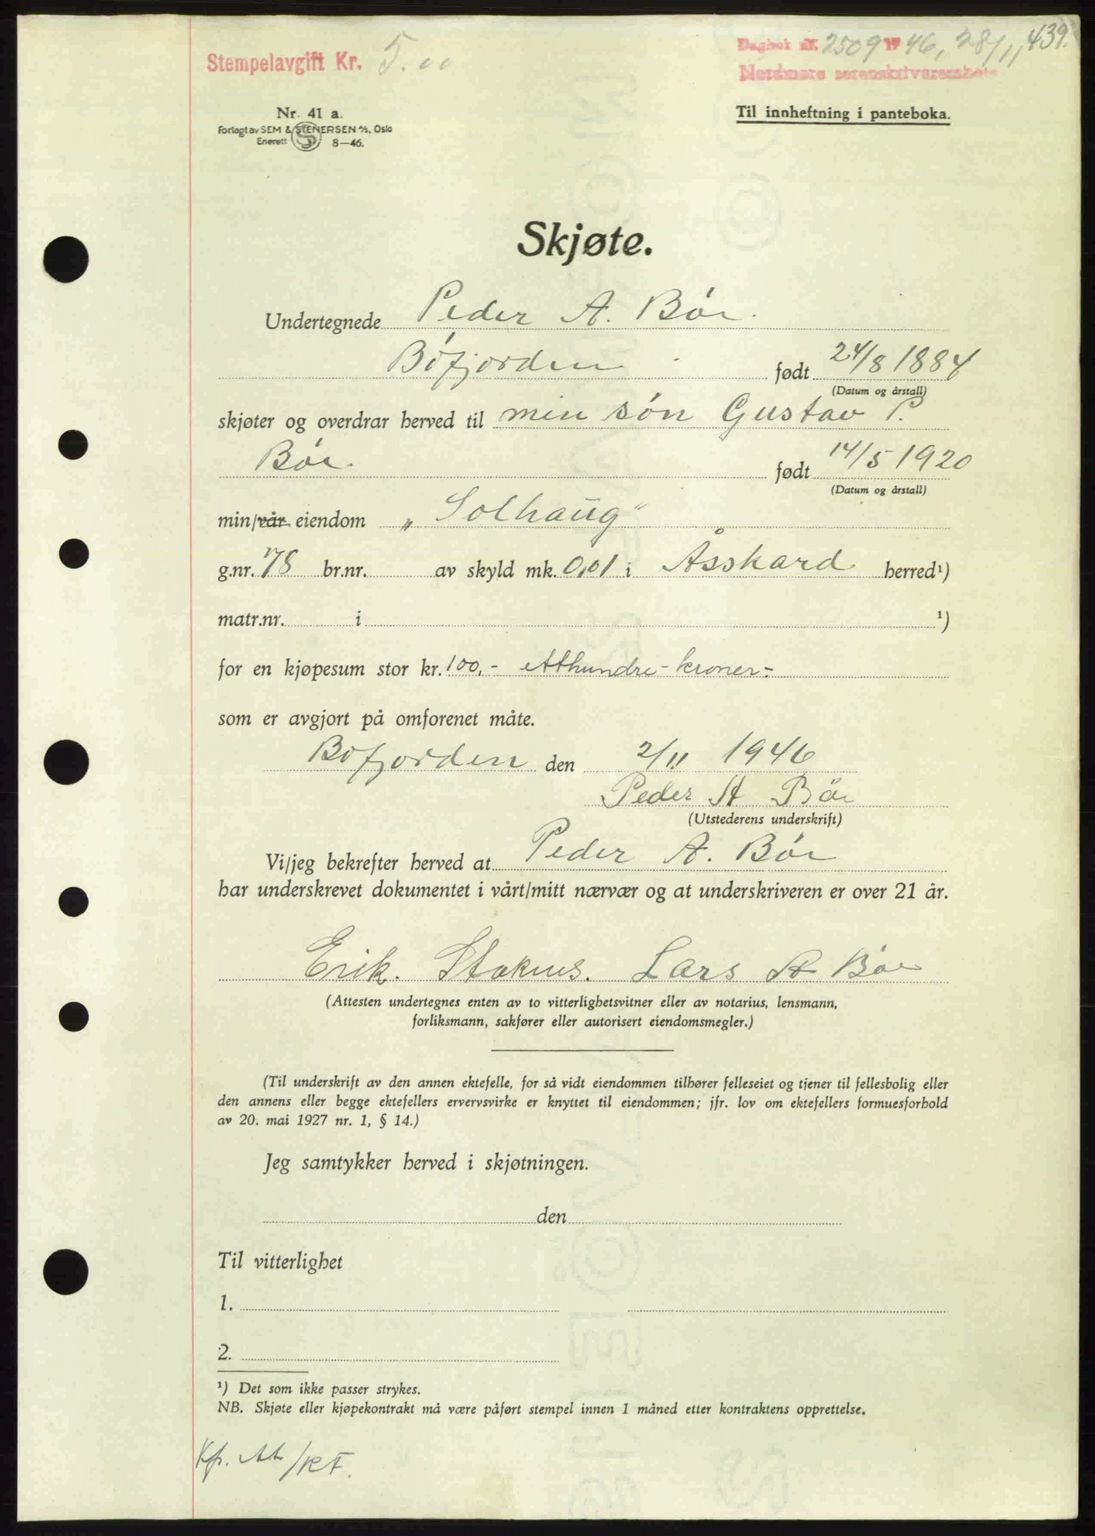 Stempelavgift Kr. 5.00
Dagbok nr. 2509 1946, 28/11 439.
Nordmøre sorenskriverembete
Nr. 41 a.
Forlagt av SEM & STENERSEN A/S, Oslo
Enerett 8—46.
Til innheftning i panteboka.
Skjøte.
Undertegnede Peder A. Bør.
Bøfjorden født 24/8 1884
(Datum og årstall)
skjøter og overdrar herved til min søn Gustav P.
Bør. født 14/5 1920
(Datum og årstall)
min/vår eiendom „Solhaug"
g.nr. 78 br.nr. av skyld mk. 0,01 i Åsskard herred¹)
matr.nr. i ¹)
for en kjøpesum stor kr. 100,- Etthundre-kroner-
som er avgjort på omforenet måte.
Bøfjorden den 2/11 1946
Peder A Bør
(Utstederens underskrift)
Vi/jeg bekrefter herved at Peder A. Bør
har underskrevet dokumentet i vårt/mitt nærvær og at underskriveren er over 21 år.
Erik. Lars A Bør
(Attesten undertegnes enten av to vitterlighetsvitner eller av notarius, lensmann,
forliksmann, sakfører eller autorisert eiendomsmegler.)
(Til underskrift av den annen ektefelle, for så vidt eiendommen tilhører felleseiet og tjener til fellesbolig eller
den annens eller begge ektefellers ervervsvirke er knyttet til eiendommen; jfr. lov om ektefellers formuesforhold
av 20. mai 1927 nr. 1, § 14.)
Jeg samtykker herved i skjøtningen.
den
Til vitterlighet
1.
2.
¹) Det som ikke passer strykes.
NB. Skjøte eller kjøpekontrakt må være påført stempel innen 1 måned etter kontraktens opprettelse.